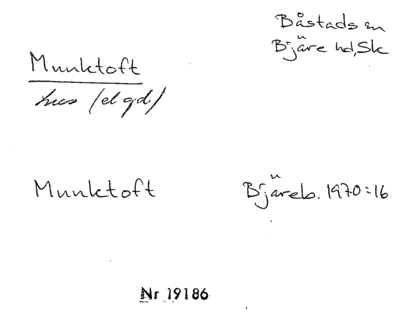 Båstads sn
Bjäre hd, Sk
Munktoft
hus (el gd)
Munktoft Bjäreb. 1970:16
Nr 19186